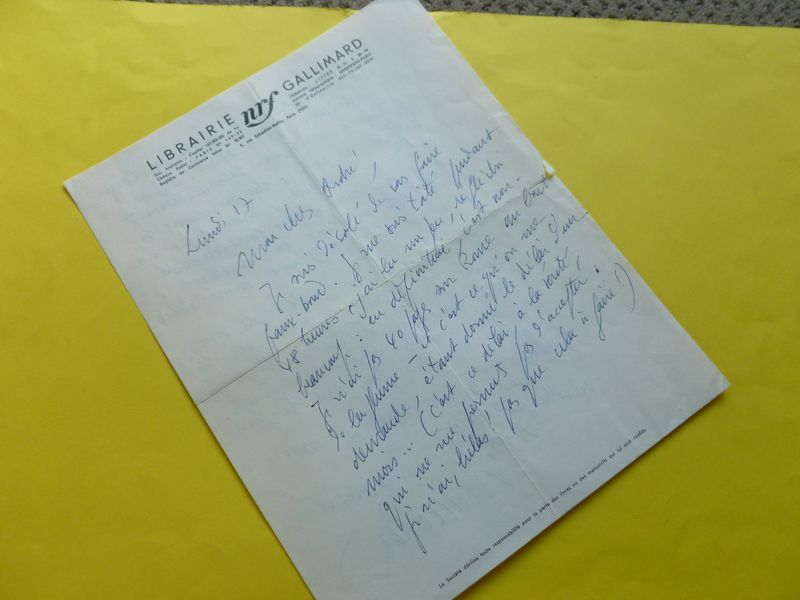 LIBRAIRIE nrf GALLIMARD
5, rue Sébastien-Bottin, Paris
Lundi 17
Mon cher André,
Je suis désolé de vous faire
faux-bond. Je me suis tâté pendant
48 heures, j'ai lu un peu, réfléchi
beaucoup : en définitive, c'est non.
Je n'ai pas 40 pages sur Rome au bout
de la plume — et c'est ce qu'on me
demande, étant donné le délai d'un
mois... (c'est ce délai à la vérité
qui ne me permet pas d'accepter :
je n'ai, hélas, pas que cela à faire !)
La Société décline toute responsabilité pour la perte des livres ou des manuscrits qui lui sont confiés.